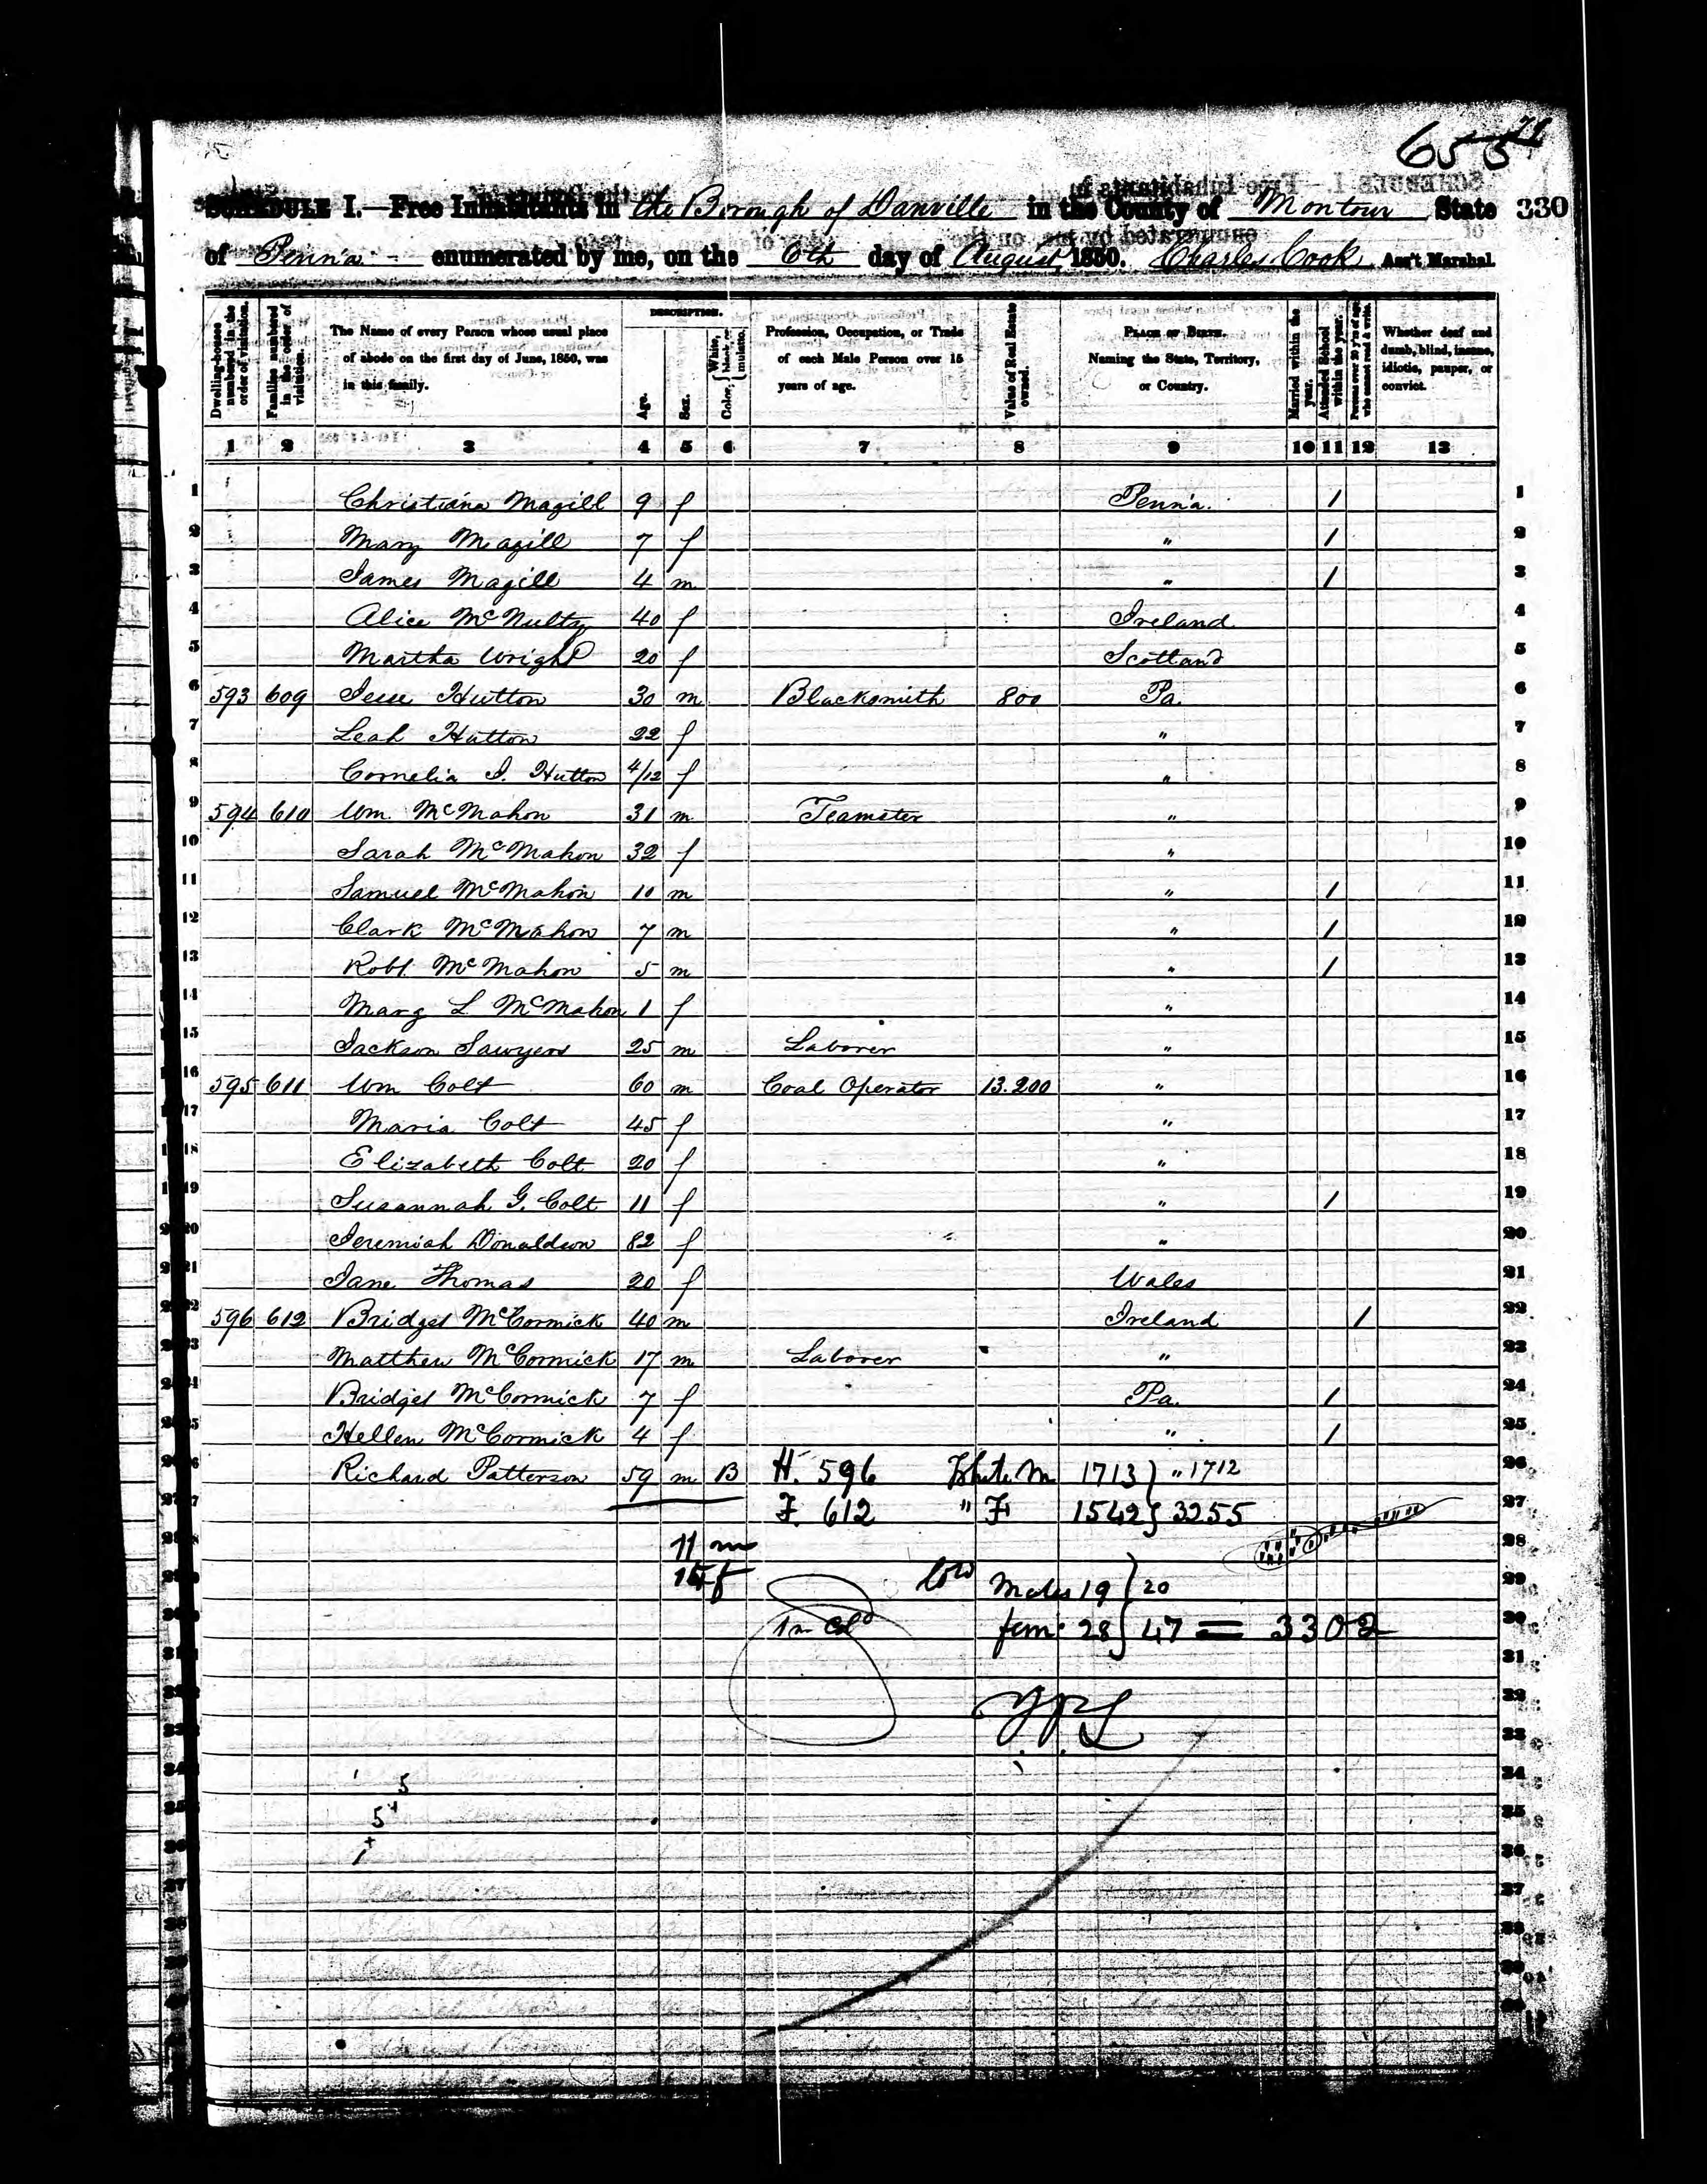 655
SCHEDULE I.—Free Inhabitants in the Borough of Danville in the County of Montour State 330
of Penn'a enumerated by me, on the 6th day of August, 1850. Charles Cook Ass't Marshal.
Dwelling-houses numbered in the order of visitation. Families numbered in the order of visitation. The Name of every Person whose usual place of abode on the first day of June, 1850, was in this family. DESCRIPTION. Age. Sex. Color, White, black, or mulatto. Profession, Occupation, or Trade of each Male Person over 15 years of age. Value of Real Estate owned. PLACE OF BIRTH. Naming the State, Territory, or Country. Married within the year. Attended School within the year. Persons over 20 y'rs of age who cannot read & write. Whether deaf and dumb, blind, insane, idiotic, pauper, or convict.
1 2 3 4 5 6 7 8 9 10 11 12 13
1 Christiana Magill 9 f Penn'a. / 1
2 Mary Magill 7 f " / 2
3 James Magill 4 m " / 3
4 Alice McNulty 40 f Ireland 4
5 Martha Wright 20 f Scotland 5
6 593 609 Jesse Hutton 30 m Blacksmith 800 Pa. 6
7 Leah Hutton 22 f " 7
8 Cornelia J. Hutton 4/12 f " 8
9 594 610 Wm. McMahon 31 m Teamster " 9
10 Sarah McMahon 32 f " 10
11 Samuel McMahon 10 m " / 11
12 Clark McMahon 7 m " / 12
13 Robt. McMahon 5 m " / 13
14 Mary L McMahon 1 f " 14
15 Jackson Sawyers 25 m Laborer " 15
16 595 611 Wm Colt 60 m Coal Operator 13.200 " 16
17 Maria Colt 45 f " 17
18 Elizabeth Colt 20 f " 18
19 Susannah G. Colt 11 f " / 19
20 Jeremiah Donaldson 82 f " 20
21 Jane Thomas 20 f Wales 21
22 596 612 Bridget McCormick 40 m Ireland / 22
23 Matthew McCormick 17 m Laborer " 23
24 Bridget McCormick 7 f Pa. / 24
25 Hellen McCormick 4 f " / 25
26 Richard Patterson 59 m B H. 596 White M 1713 } " 1712 26
27 F. 612 " F 1542 } 3255 27
28 11 m 28
29 15 f Col Males 19 } 20 29
30 1 m Cold fem: 28 } 47 = 3302 30
31 31
32 32
33 33
34 5 34
35 5 + 35
36 + 1 36
37 37
38 38
39 39